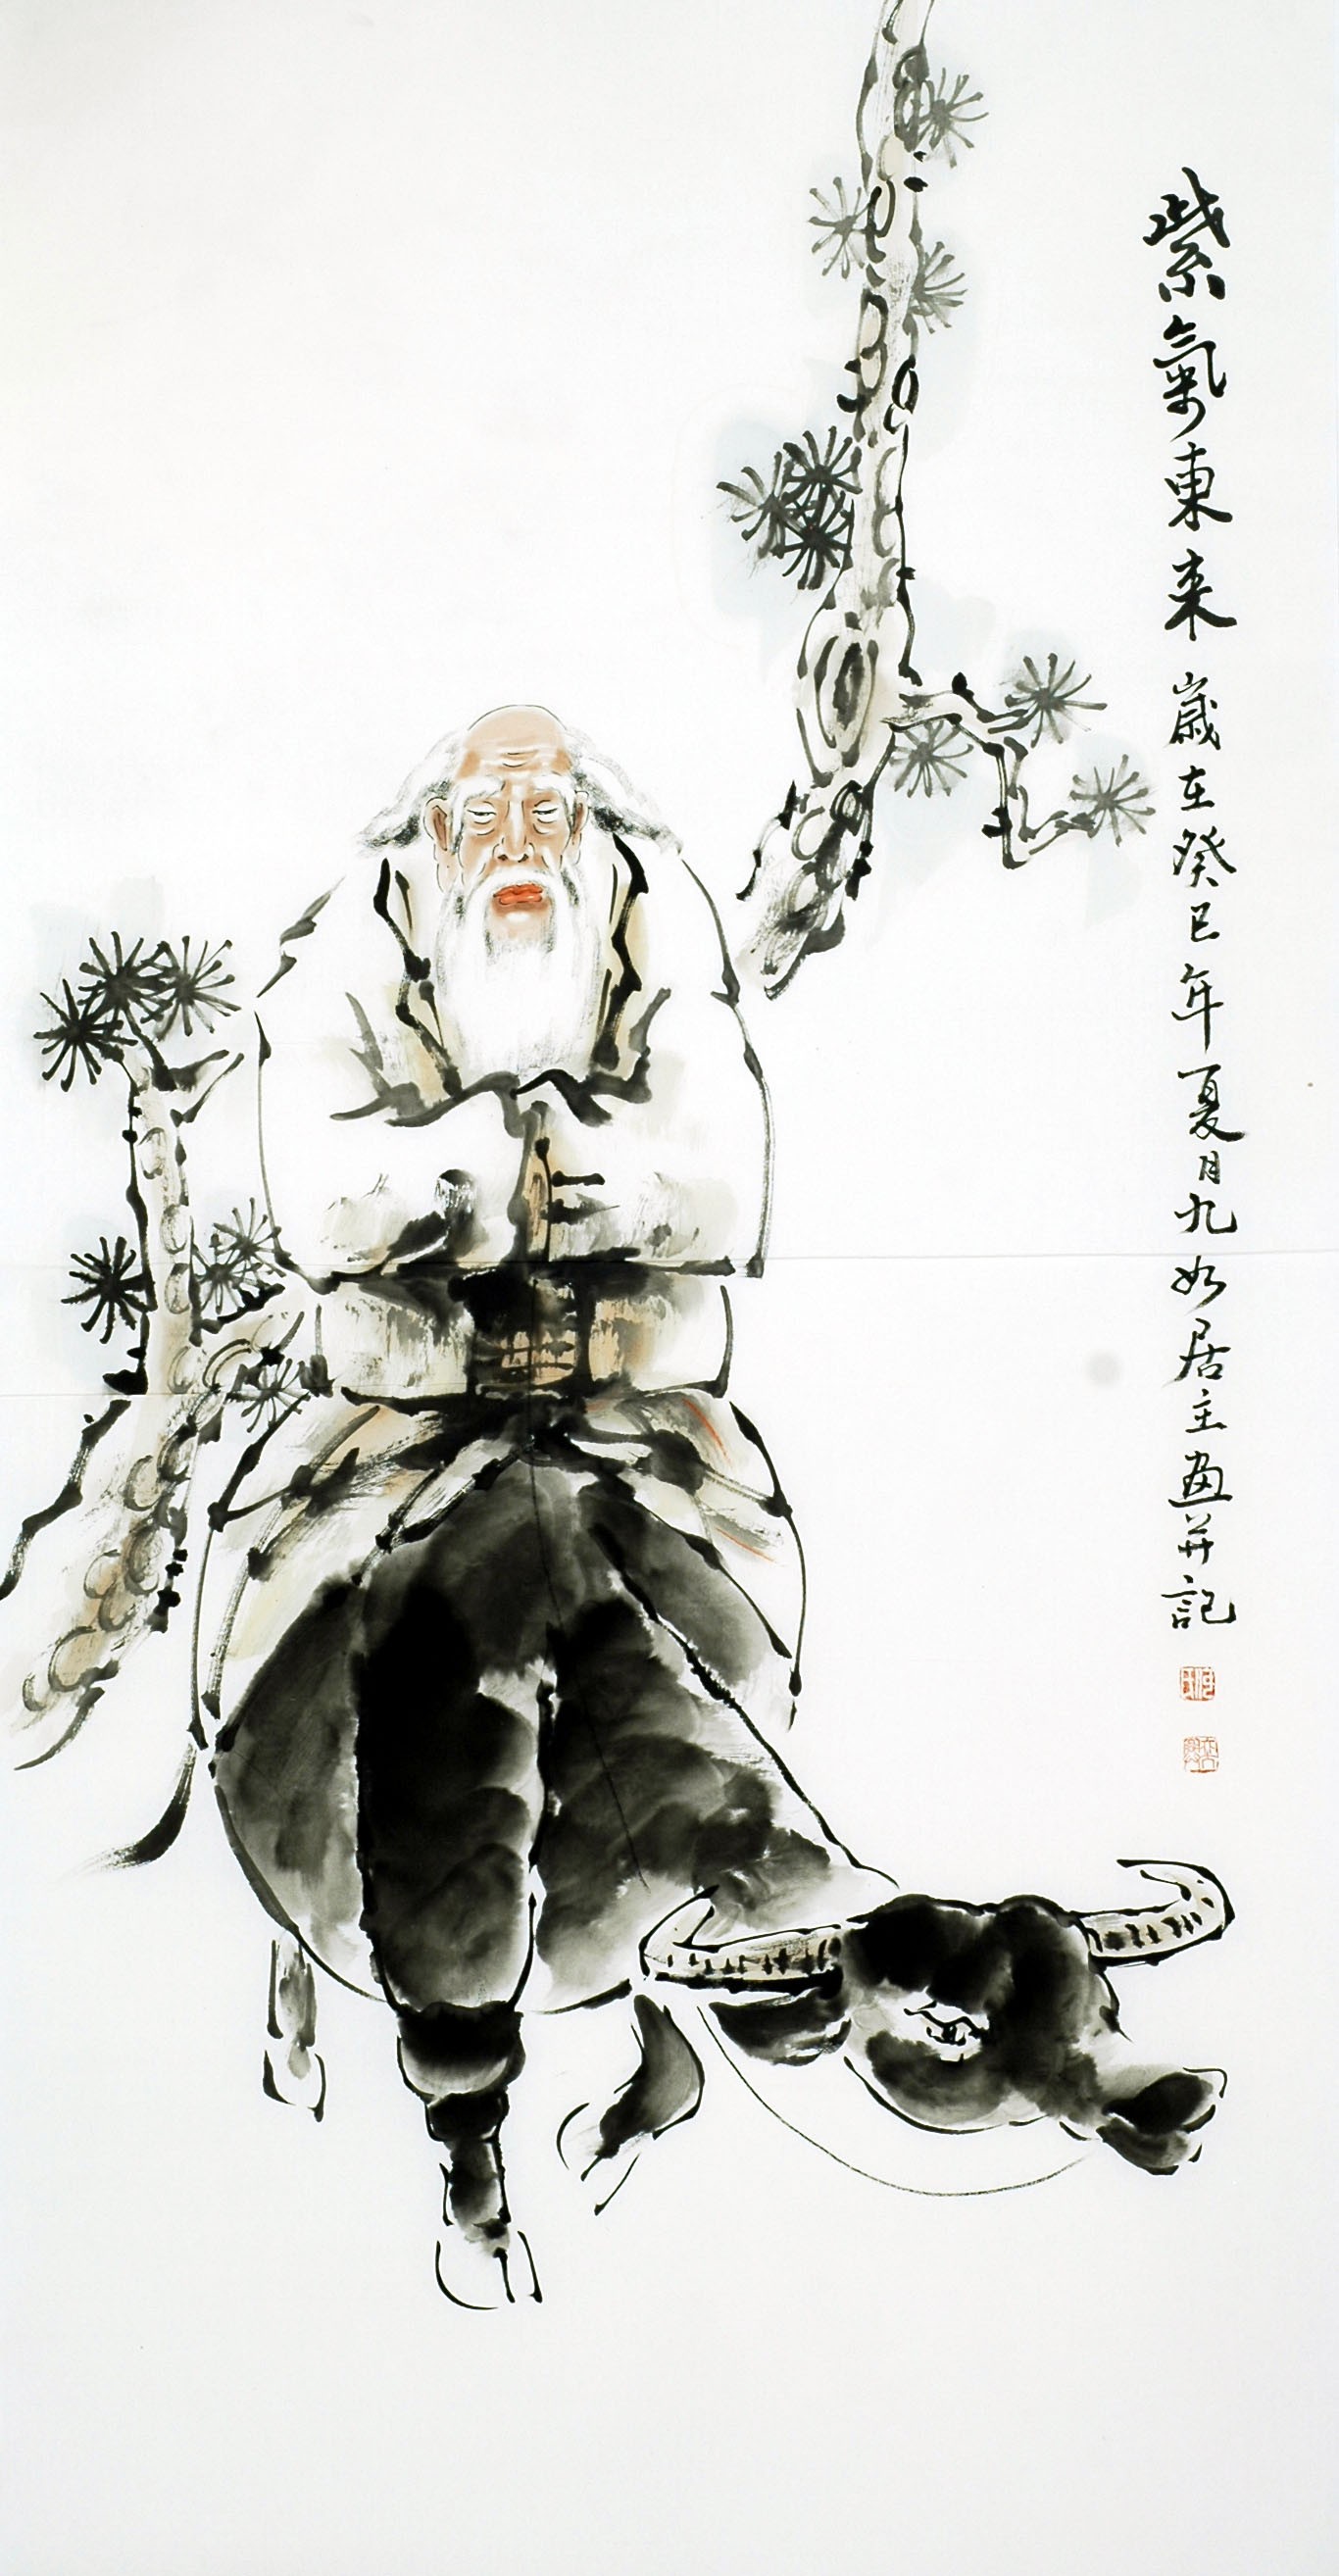 紫氣東来歲在癸巳年夏月九如居主画并記